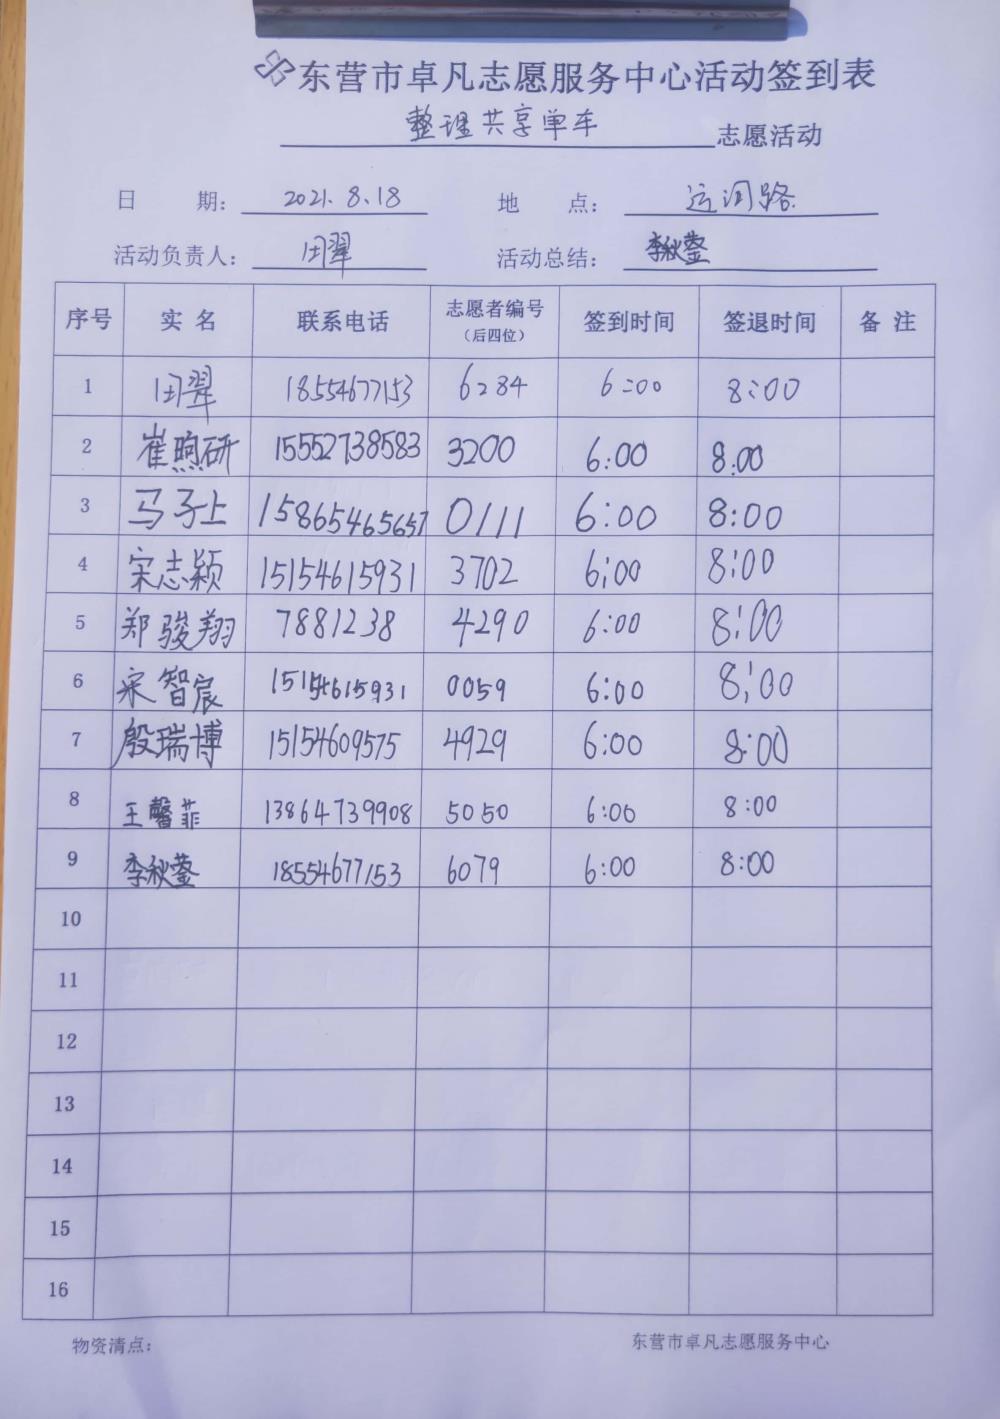 东营市卓凡志愿服务中心活动签到表
整理共享单车 志愿活动
日 期: 2021.8.18 地 点: 运河路
活动负责人: 田翠 活动总结: 李秋蓥
序号 实名 联系电话 志愿者编号(后四位) 签到时间 签退时间 备注
1 田翠 18554677153 6284 6:00 8:00
2 崔煦研 15552738583 3200 6:00 8:00
3 马子上 15865465657 0111 6:00 8:00
4 宋志颖 15154615931 3702 6:00 8:00
5 郑骏翔 7881238 4290 6:00 8:00
6 宋智宸 15154615931 0059 6:00 8:00
7 殷瑞博 15154609575 4929 6:00 8:00
8 王馨菲 13864739908 5050 6:00 8:00
9 李秋蓥 18554677153 6079 6:00 8:00
10
11
12
13
14
15
16
物资清点: 东营市卓凡志愿服务中心